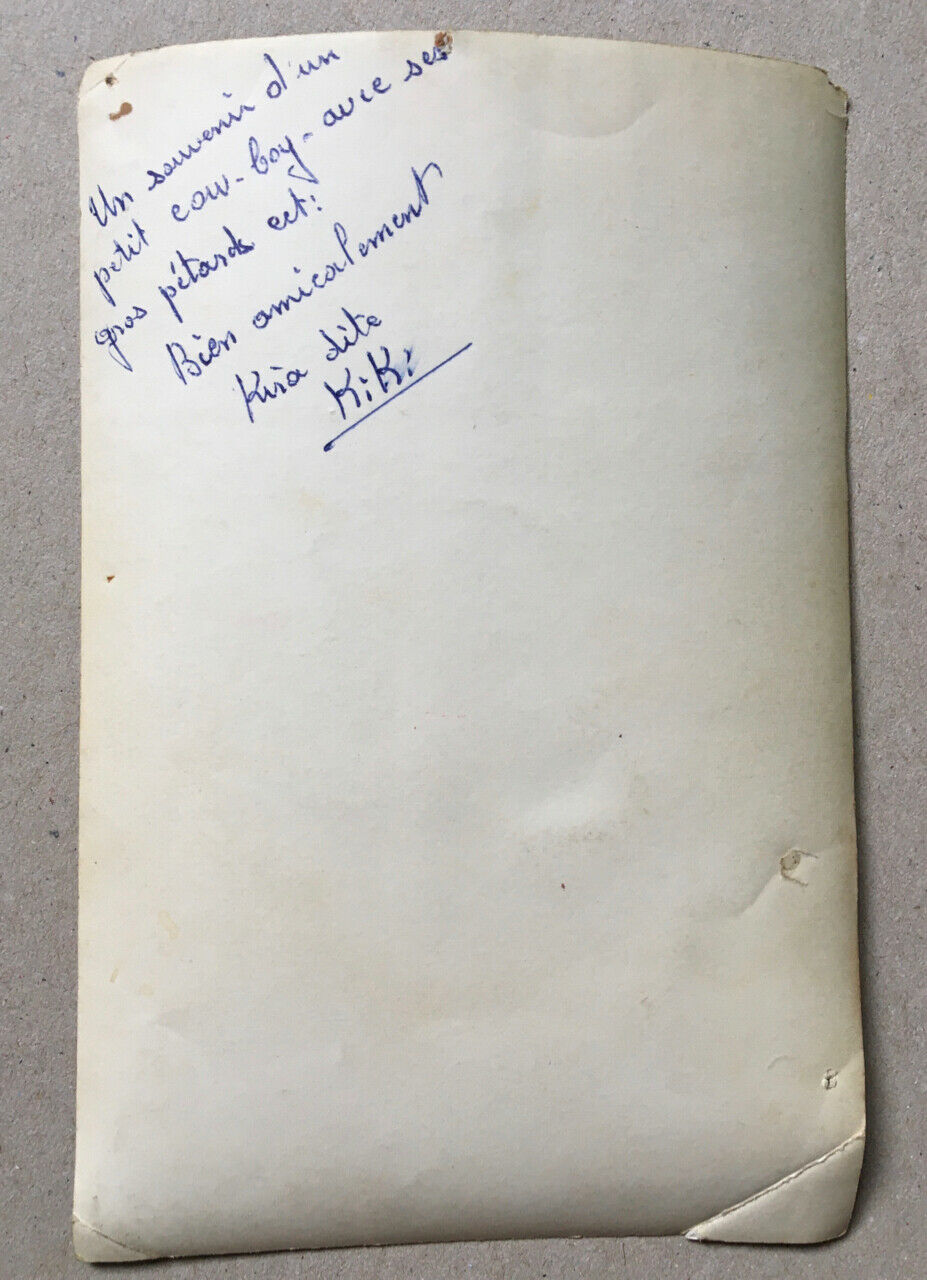 Un souvenir d'un
petit cow-boy-avec ses
gros pétards ect:
Bien amicalement
Kira dite
KiKi